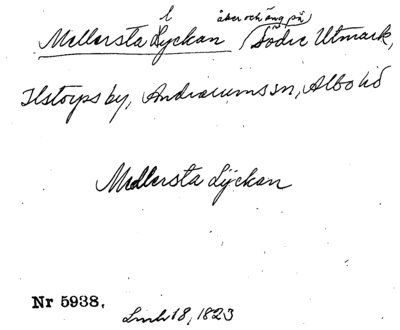 Mellersta Lyckan åker och äng på Södre Utmark,
Ilstorps by, Andrarums sn, Albo hd
Mellersta Lÿckan
Nr 5938.
Lmh 18, 1823